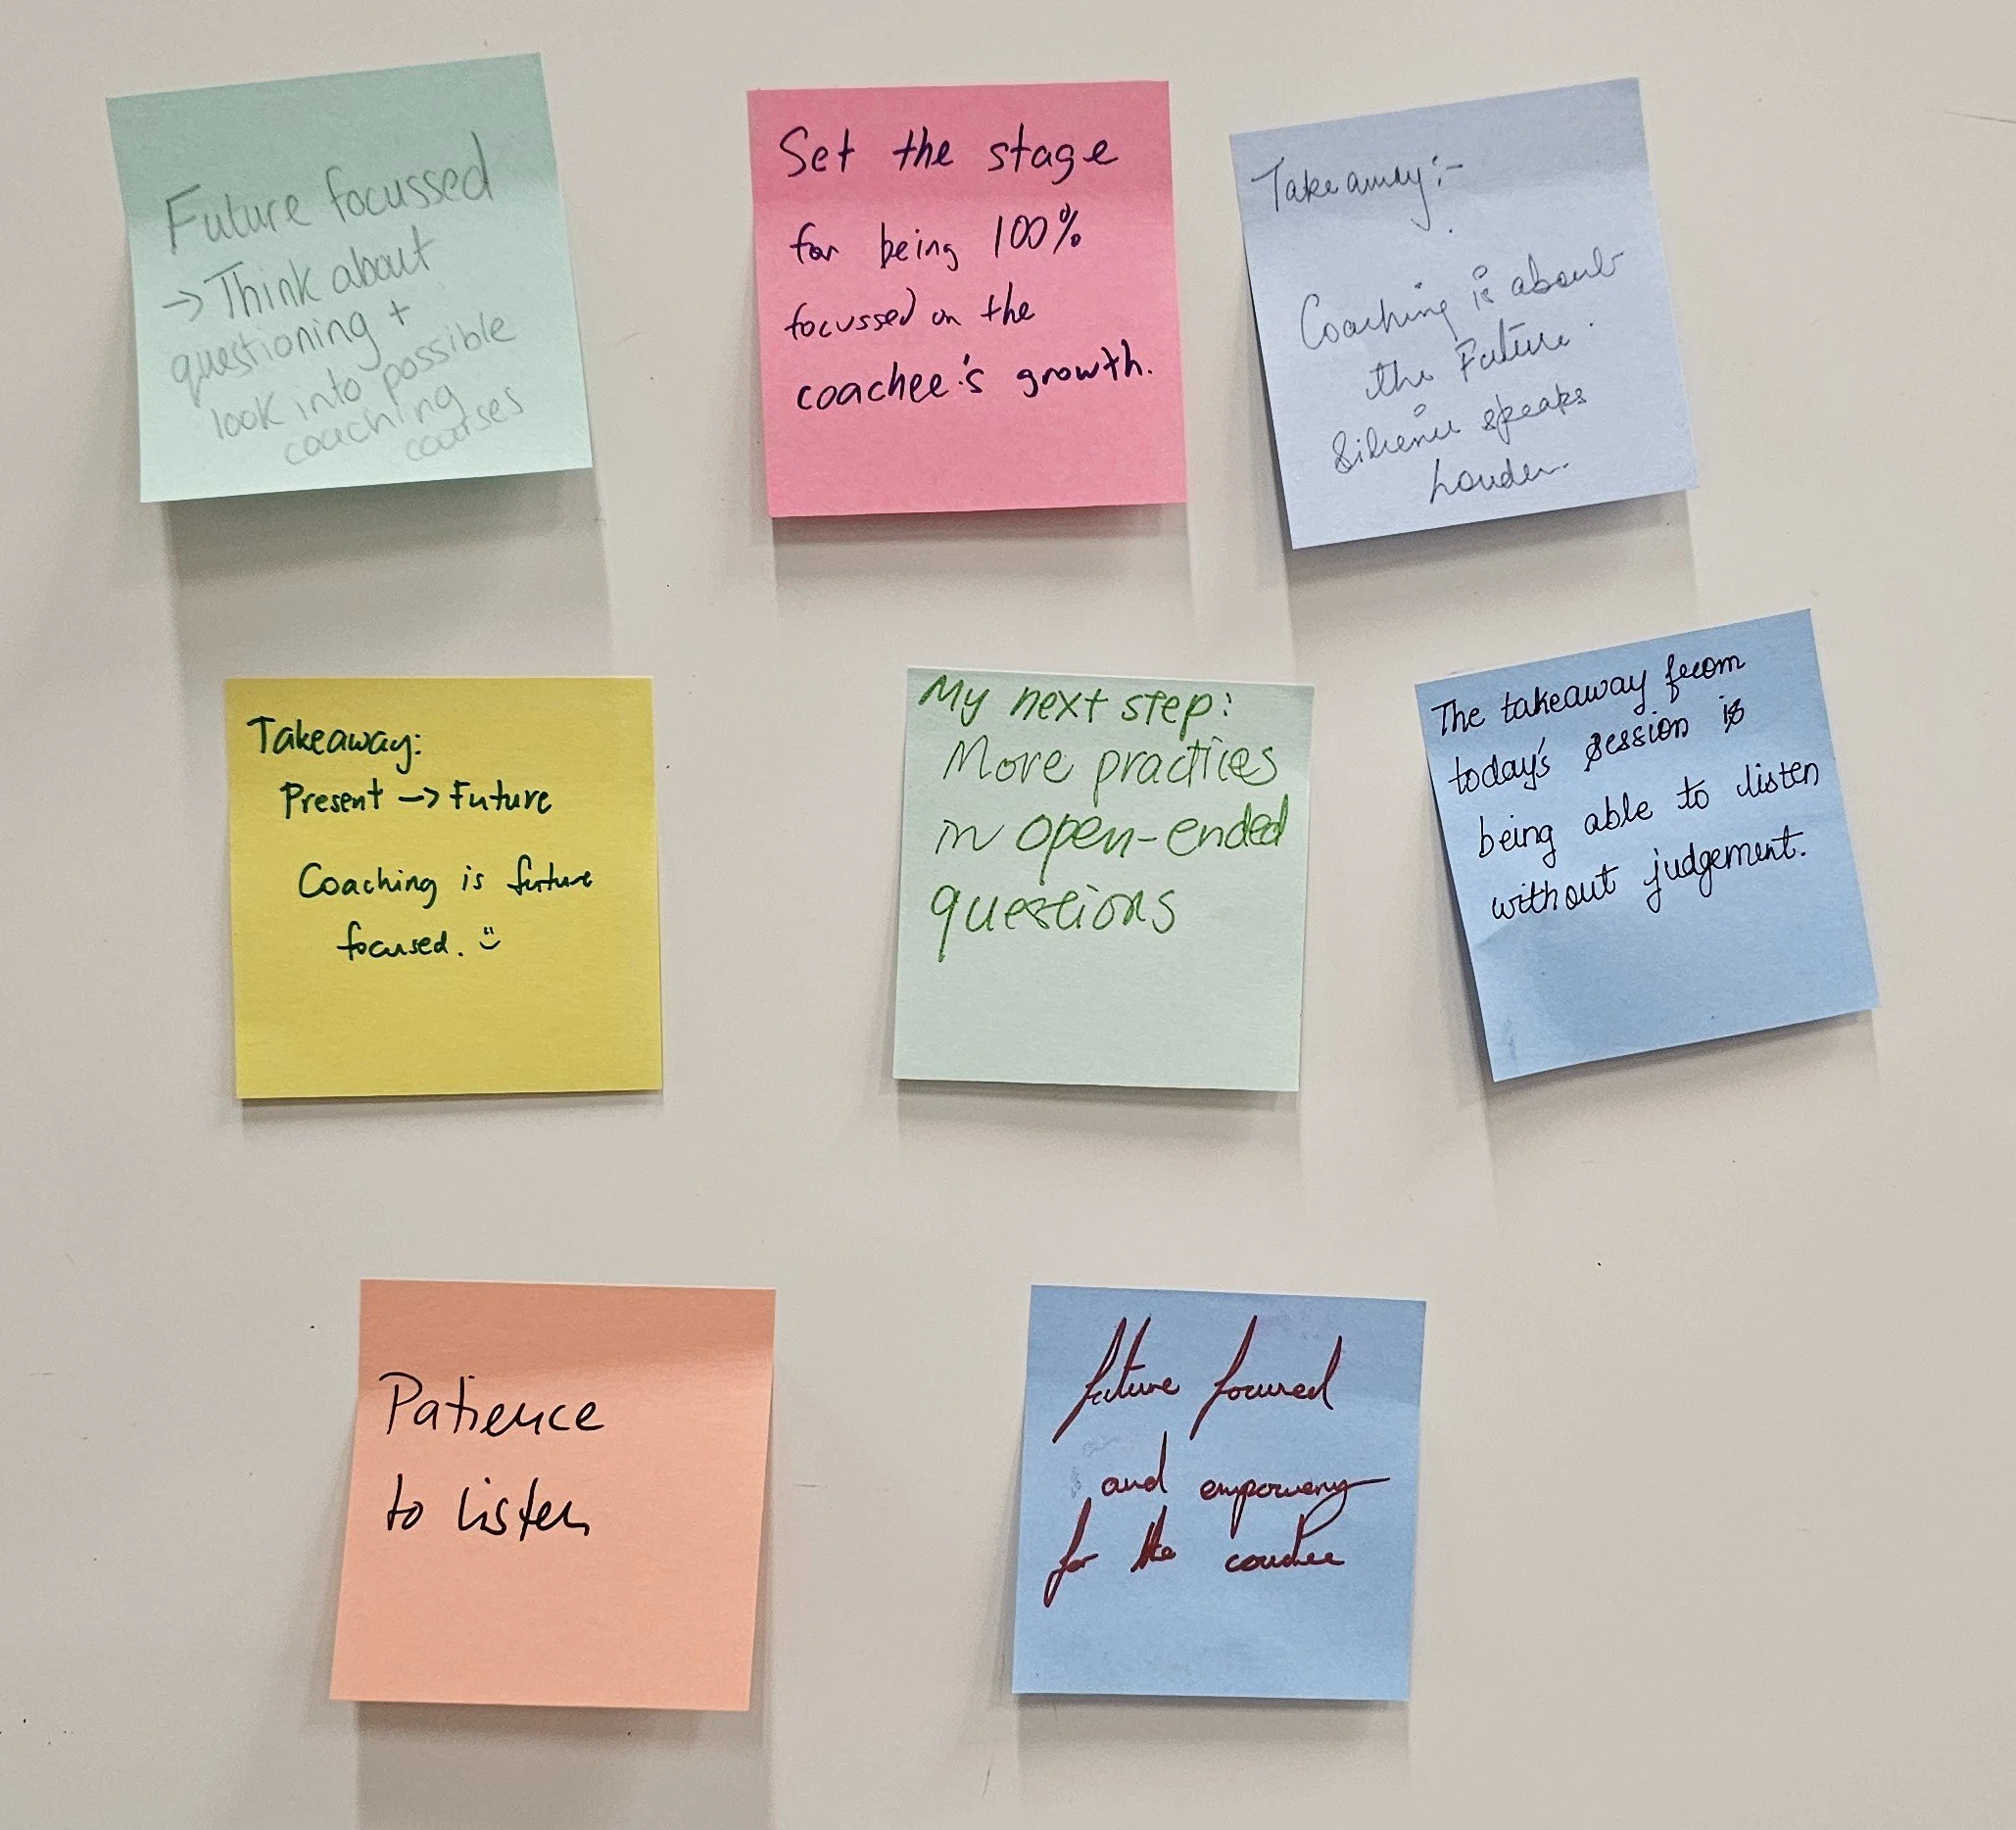 Future focussed
→ Think about
questioning +
look into possible
coaching
courses
Set the stage
for being 100%
focussed on the
coachee's growth.
Takeaway:-
Coaching is about
the Future.
Silence speaks
Louder.
Takeaway:
Present → Future
Coaching is future
focused. :)
My next step:
More practices
in open-ended
questions
The takeaway from
today's session is
being able to listen
without judgement.
Patience
to Listen
future focused
and empowering
for the coachee